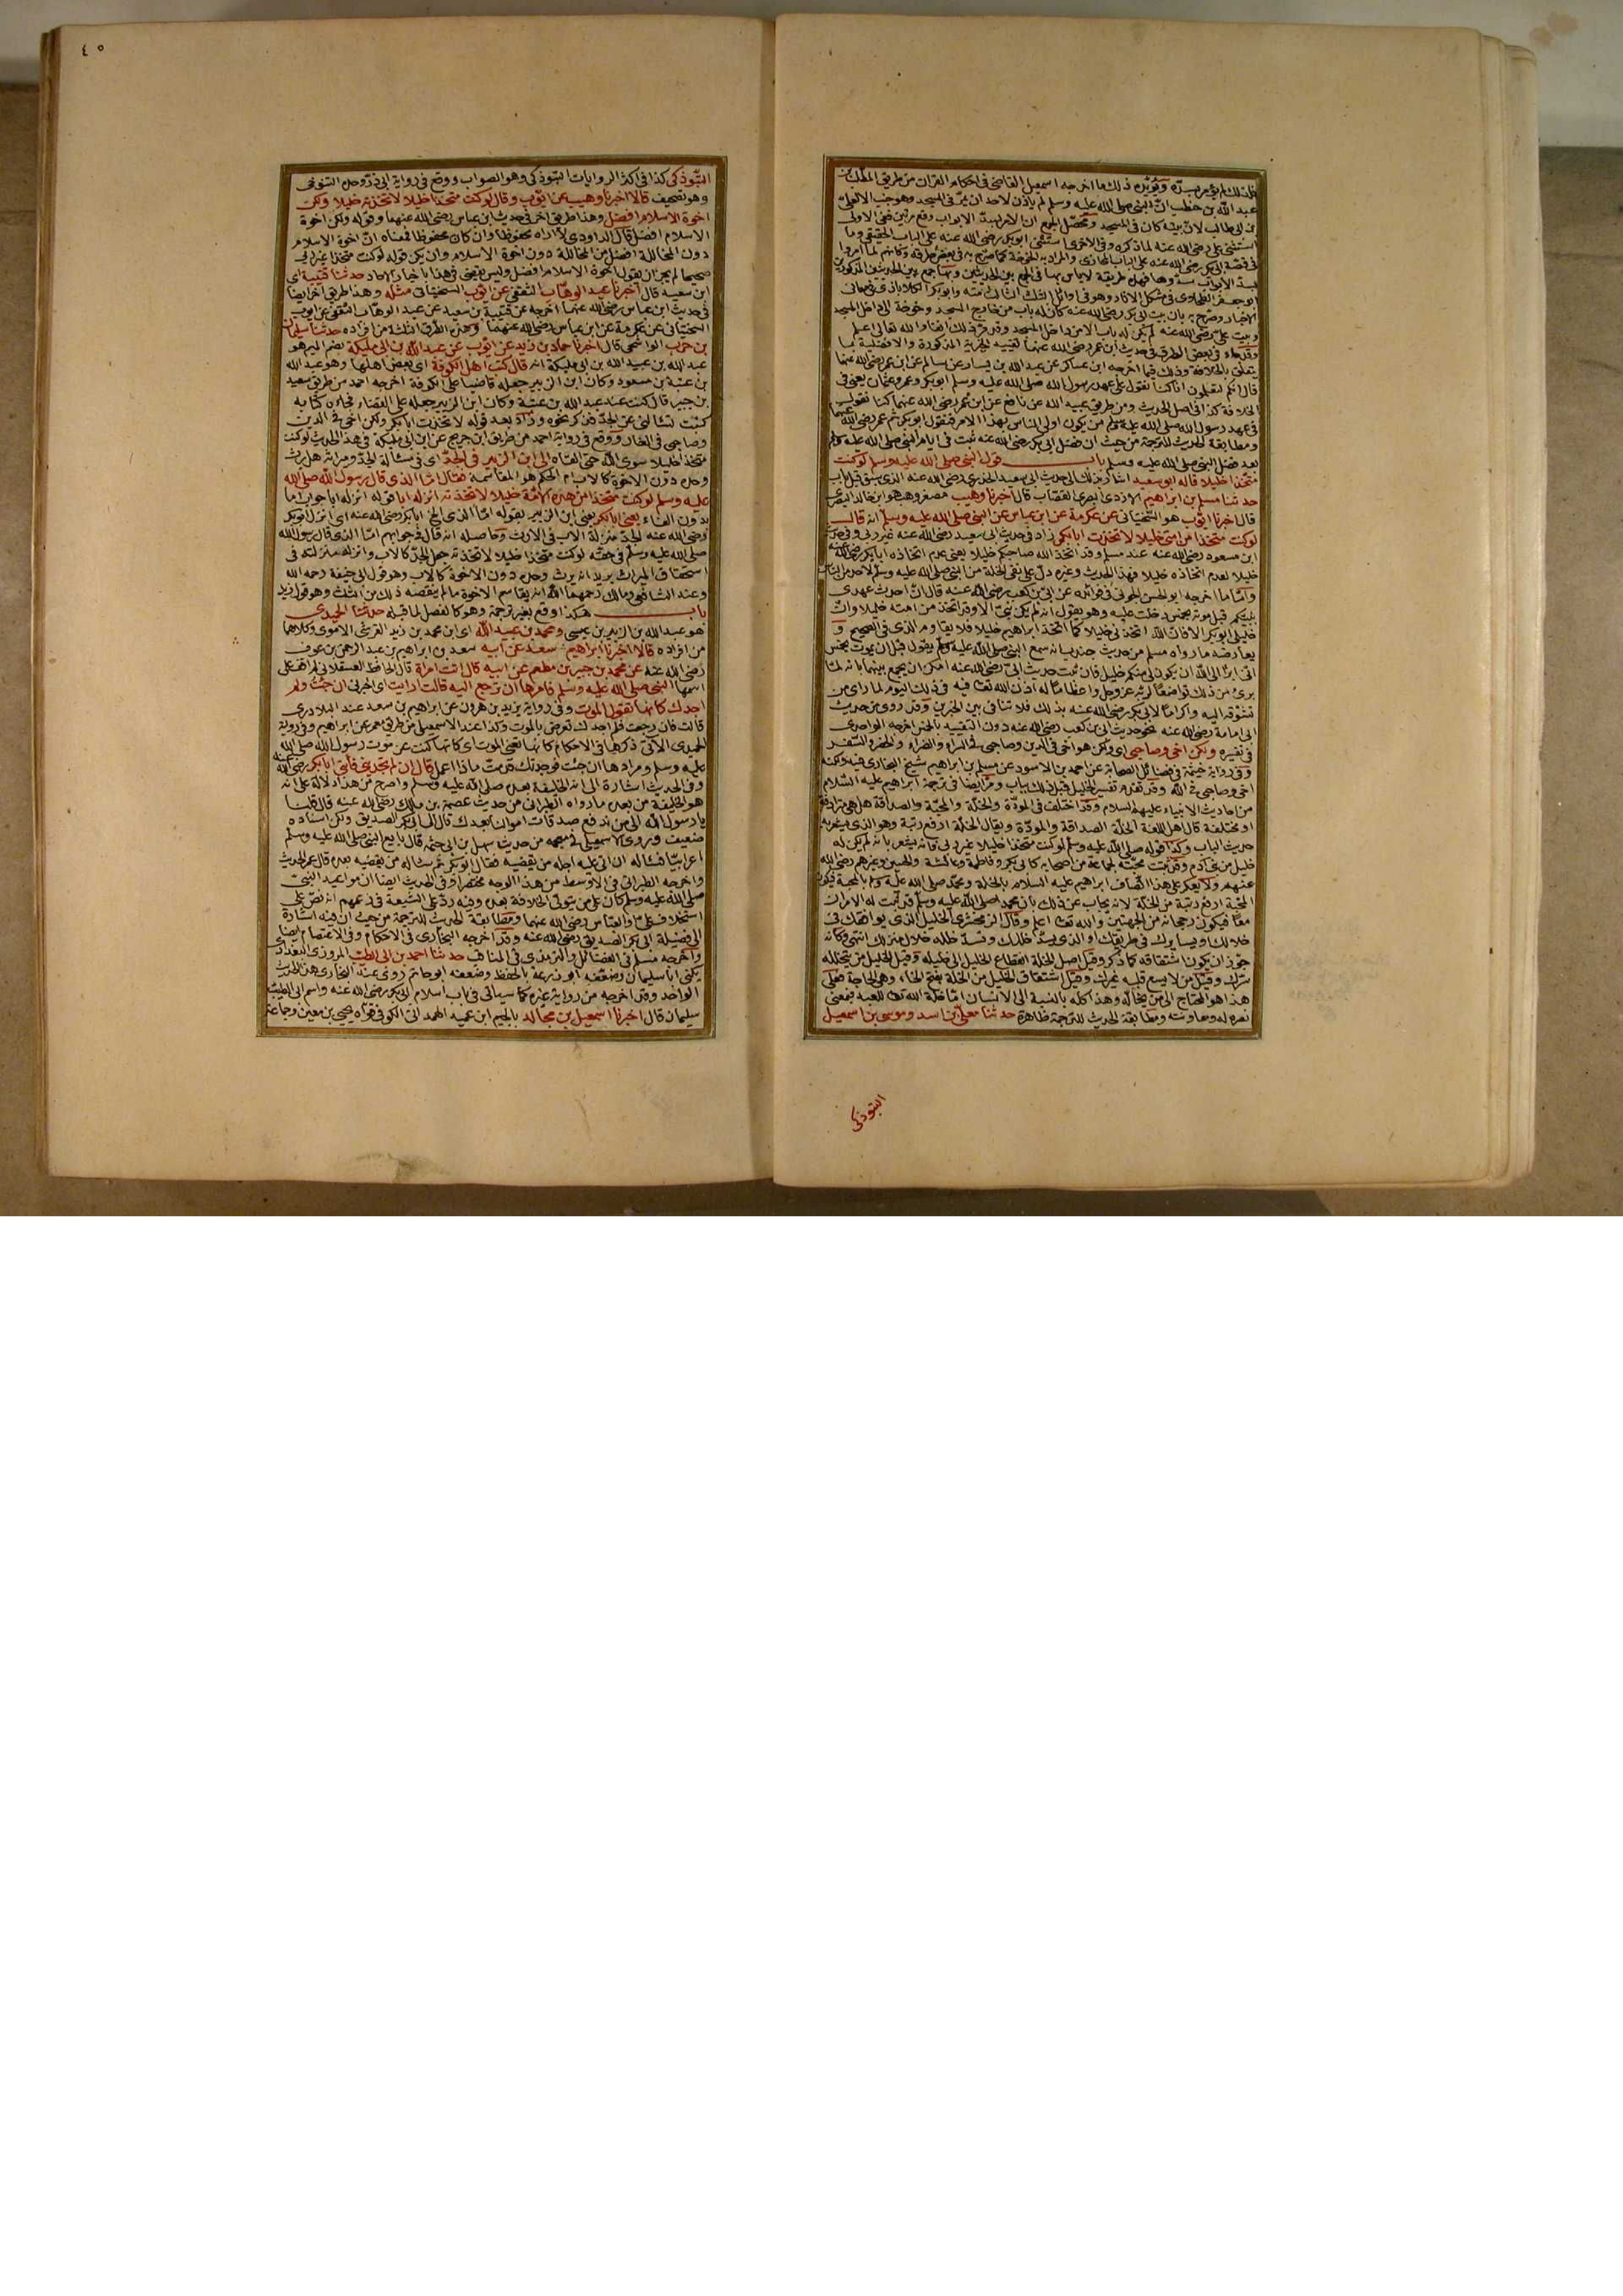 فلذلك لم يؤمر بسدّه ويؤيّده ذلك ما اخرجه اسمعيل القاضى فى احكام القران من طريق المطلب بن
عبد الله بن حنطب انّ النبى صلى الله عليه وسلم لم يأذن لاحد ان يمرّ فى المسجد وهو جنب الا لعلىّ
بن ابى طالب لانّ بيته كان فى المسجد ومحصّل الجمع ان الامر بسدّ الابواب وقع مرتين ففى الاولى
استثنى على رضى الله عنه لما ذكره وفى الاخرى استثنى ابو بكر رضى الله عنه على الباب الحقيقى وما
فى قصّة ابى بكر رضى الله عنه على الباب المجازى والمراد به الخوخة كما صرّح به فى بعض طرقه وكانهم لما امروا
بسدّ الابواب سدّوها فهذه طريقة لا بأس بها فى الجمع بين الحديثين وبها جمع بين الحديثين المذكورين
ابو جعفر الطحاوى فى مشكل الاثار وهو فى اوائل الثلث الثالث منه وابو بكر الكلاباذى فى معانى
الاخبار وصرّح بان بيت ابى بكر رضى الله عنه كان له باب من خارج المسجد وخوخة الى داخل المسجد
وبيت على رضى الله عنه لم يكن له باب الا من داخل المسجد والله تعالى اعلم
وقد جاء فى بعض الطرق فى حديث ابن عمر رضى الله عنهما تقييد الخيريّة المذكورة والافضلية بما
يتعلق بالخلافة وذلك فيما اخرجه ابن عساكر عن عبد الله بن يسار عن سالم عن ابن عمر رضى الله عنهما
قال انكم لتعلمون انا كنا نقول على عهد رسول الله صلى الله عليه وسلم ابو بكر وعمر وعثمان يعنى فى
الخلافة كذا فى اصل الحديث ومن طريق عبيد الله عن نافع عن ابن عمر رضى الله عنهما كنا نقول
فى عهد رسول الله صلى الله عليه وسلم من يكون اولى الناس بهذا الامر فنقول ابو بكر ثم عمر رضى الله عنهما
ومطابقة الحديث للترجمة من حيث ان فضل ابى بكر رضى الله عنه ثبت فى ايام النبى صلى الله عليه وسلم
بعد فضل النبى صلى الله عليه وسلم باب قول النبى صلى الله عليه وسلم لو كنت
متخذا خليلا قاله ابو سعيد اشار بذلك الى حديث ابى سعيد الخدرى رضى الله عنه الذى سبق قبل باب
حدثنا مسلم بن ابراهيم الازدى البصرى القصّاب قال اخبرنا وهيب مصغر وهب هو ابن خالد البصرى
قال اخبرنا ايّوب هو السختيانى عن عكرمة عن ابن عباس عن النبى صلى الله عليه وسلم انه قال
لو كنت متخذا من امتى خليلا لاتخذت ابا بكر زاد فى حديث ابى سعيد رضى الله عنه غير ربى وفى حديث
ابن مسعود رضى الله عنه عند مسلم وقد اتخذ الله صاحبكم خليلا يعنى عدم اتخاذه ابا بكر رضى الله عنه
خليلا لعدم اتخاذه خليلا فهذا الحديث وغيره دلّ على نفى الخلة من النبى صلى الله عليه وسلم لاحد من الناس
وامّا ما اخرجه ابو الحسن الحربى فى فوائده عن ابىّ بن كعب رضى الله عنه قال انّ احدث عهدى
بنبيّكم قبل موته بخمس دخلت عليه وهو يقول انه لم يكن نبىّ الا وقد اتخذ من امته خليلا وانّ
خليلى ابو بكر الا فان الله اتخذنى خليلا كما اتخذ ابراهيم خليلا فلا يقاوم الذى فى الصحيح و
يعارضه ما رواه مسلم من حديث جندب انه سمع النبى صلى الله عليه وسلم يقول قبل ان يموت بخمس
انى ابرأ الى الله ان يكون لى منكم خليل فان ثبت حديث ابىّ رضى الله عنه امكن ان يجمع بينهما بانه لمّا
برئ من ذلك تواضعا لربّه عز وجل واعظاما له اذن الله تعالى فيه فى ذلك اليوم لما راى من
تشوّقه اليه واكراما لابى بكر رضى الله عنه بذلك فلا تنافى بين الخبرين وقد روى من حديث
ابى امامة رضى الله عنه نحو حديث ابىّ بن كعب رضى الله عنه دون التقييد بالخمس اخرجه الواحدى
فى تفسيره ولكن اخى وصاحبى اى ولكن هو اخى فى الدين وصاحبى فى السراء والضراء والحضر والسفر
وفى رواية خيثمة فى فضائل الصحابة عن احمد بن الاسود عن مسلم بن ابراهيم شيخ البخارى فيه ولكنه
اخى وصاحبى فى الله وقد تقدم تفسير الخليل قبيل ذلك بباب ومرّ ايضا فى ترجمة ابراهيم عليه السلام
من احاديث الانبياء عليهم السلام وقد اختلف فى المودّة والخلّة والمحبّة والصداقة هل هى مترادفة
او مختلفة قال اهل اللغة الخلّة الصداقة والمودّة ويقال الخلّة ارفع رتبة وهو الذى يشعر به
حديث الباب وكذا قوله صلى الله عليه وسلم لو كنت متخذا خليلا غير ربى فانه يشعر بانه لم يكن له
خليل من بنى آدم وقد ثبتت محبّته لجماعة من اصحابه كابى بكر وفاطمة وعائشة والحسين وغيرهم رضى الله
عنهم ولا يعكر على هذا اتّصاف ابراهيم عليه السلام بالخلة ومحمّد صلى الله عليه وسلم بالمحبة فيكون
المحبّة ارفع رتبة من الخلّة لانه يجاب عن ذلك بان محمدا صلى الله عليه وسلم قد ثبت له الامران
معًا فيكون رجحانه من الجهتين والله تعالى اعلم وقال الزمخشرى الخليل الذى يوافقك فى
خلالك ويسايرك فى طريقك او الذى يسدّ خللك وتسدّ خلله خلال منزلك انتهى وكانه
جوّز ان يكون اشتقاقه مما ذكر وقيل اصل الخلة انقطاع الخليل الى خليله وقيل الخليل من يتخلله
سرّك وقيل من لا يسع قلبه غيرك وقيل اشتقاق الخليل من الخلة بفتح الخاء وهى الحاجة فعلى
هذا هو المحتاج الى من يخالّه وهذا كله بالنسبة الى الانسان امّا خلّة الله تعالى للعبد فبمعنى
نصره له ومعاونته ومطابقة الحديث للترجمة ظاهرة حدثنا معلّى بن اسد وموسى بن اسمعيل
التبوذكى
٤٥
التبوذكى كذا فى اكثر الروايات التبوذكى وهو الصواب ووقع فى رواية ابى ذرّ وحده التنوخى
وهو تصحيف قالا اخبرنا وهيب عن ايّوب وقال لو كنت متخذا خليلا لاتخذته خليلا ولكن
اخوة الاسلام افضل وهذا طريق آخر فى حديث ابن عباس رضى الله عنهما وقوله ولكن اخوة
الاسلام افضل قال الداودى لا اراه محفوظا وان كان محفوظا فمعناه انّ اخوة الاسلام
دون المخاللة افضل من المخاللة دون اخوة الاسلام وان يكن قوله لو كنت متخذا غير ربى
صحيحا لم يجز ان يقول اخوة الاسلام افضل وليس يقضى فى هذا باخبار الاحاد حدثنا قتيبة اى
ابن سعيد قال اخبرنا عبد الوهّاب الثقفى عن ايّوب السختيانى مثله وهذا طريق آخر ايضا
فى حديث ابن عباس رضى الله عنهما اخرجه عن قتيبة بن سعيد عن عبد الوهاب الثقفى عن ايوب
السختيانى عن عكرمة عن ابن عباس رضى الله عنهما وهذه الطرق الثلاثة من افراده حدثنا سليمان
بن حرب الواشحى قال اخبرنا حماد بن زيد عن ايّوب عن عبد الله بن ابى مليكة بضم الميم هو
عبد الله بن عبيد الله بن ابى مليكة انه قال كتب اهل الكوفة اى بعض اهلها وهو عبد الله
بن عتبة بن مسعود وكان ابن الزبير جعله قاضيا على الكوفة اخرجه احمد من طريق سعيد
بن جبير قال كنت عند عبد الله بن عتبة وكان ابن الزبير جعله على القضاء فجاءه كتابه
كتبت تسئالنى عن الجدّ فذكر نحوه وزاد بعد قوله لاتخذت ابا بكر ولكن اخى فى الدين
وصاحبى فى الغار ووقع فى رواية احمد من طريق ابن جريج عن ابن ابى مليكة فى هذا الحديث لو كنت
متخذا خليلا سوى الله حتى القاه الى ابن الزبير فى الجدّ اى فى مسألة الجدّ وميراثه هل يرث
وحده دون الاخوة كالاب ام الحكم هو المقاسمة فقال امّا الذى قال رسول الله صلى الله
عليه وسلم لو كنت متخذا من هذه الامّة خليلا لاتخذته انزله ابا قوله انزله ابا جواب اما
بدون الفاء يعنى ابا بكر يعنى ابن الزبير بقوله امّا الذى الخ ابا بكر رضى الله عنه اى انزل ابو بكر
رضى الله عنه الجدّ منزلة الاب فى الارث وحاصله انه قال فى جوابهم امّا الذى قال رسول الله
صلى الله عليه وسلم فى حقّه لو كنت متخذا خليلا لاتخذته جعل الجدّ كالاب وانزله منزلته فى
استحقاق الميراث يريد انه يرث وحده دون الاخوة كالاب وهو قول ابى حنيفة رحمه الله
وعند الشافعى ومالك رحمهما الله انه يقاسم الاخوة ما لم ينقصه ذلك من الثلث وهو قول زيد
باب هكذا وقع بغير ترجمة وهو كالفصل لما قبله حدثنا الحميدى
هو عبد الله بن الزبير بن عيسى ومحمد بن عبيد الله اى ابن محمد بن زيد القرشى الاموى وكلاهما
من افراده قالا اخبرنا ابراهيم بن سعد عن ابيه سعد بن ابراهيم بن عبد الرحمن بن عوف
رضى الله عنه عن محمد بن جبير بن مطعم عن ابيه قال اتت امراة قال الحافظ العسقلانى لم اقف على
اسمها النبى صلى الله عليه وسلم فامرها ان ترجع اليه قالت ارايت اى اخبرنى ان جئت ولم
اجدك كانها تقول الموت وفى رواية يزيد بن هرون عن ابراهيم بن سعد عند البلاذرى
قالت فان رجعت فلم اجدك تعرض بالموت وكذا عند الاسمعيلى من طريق معمر عن ابراهيم وفى رواية
الحميدى الآتى ذكرها فى الاحكام كانها تعنى الموت اى كانها كنت عن موت رسول الله صلى الله
عليه وسلم ومرادها ان جئت فوجدتك قد متّ ماذا اعمل قال ان لم تجدينى فأتى ابا بكر رضى الله عنه
وفى الحديث اشارة الى انه الخليفة بعده صلى الله عليه وسلم واصرح من هذا دلالة على انه
هو الخليفة من بعده ما رواه الطبرانى من حديث عصمة بن مالك رضى الله عنه قال قلنا
يا رسول الله الى من ندفع صدقات اموالنا بعدك قال الى ابى بكر الصديق ولكن اسناده
ضعيف وروى الاسمعيلى فى معجمه من حديث سهل بن ابى حثمة قال بايع النبى صلى الله عليه وسلم
اعرابيّا فسئاله ان اتى عليه اجله من يقضيه فقال ابو بكر ثم سئاله من يقضيه بعده قال عمر الحديث
واخرجه الطبرانى فى الاوسط من هذا الوجه مختصرا وفى الحديث ايضا ان مواعيد النبى
صلى الله عليه وسلم كان على من يتولّى الخلافة بعده وفيه ردّ على الشيعة فى زعمهم انه نصّ على
استخلاف علىّ والعبّاس رضى الله عنهما ومطابقة الحديث للترجمة من حيث ان فيه اشارة
الى فضيلة ابى بكر الصديق رضى الله عنه وقد اخرجه البخارى فى الاحكام وفى الاعتصام ايضا
واخرجه مسلم فى الفضائل والترمذى فى المناقب حدثنا احمد بن ابى الطيّب المروزى البغدادى
يكنى ابا سليمان وصفه ابو زرعة بالحفظ وضعفه ابو حاتم روى عنه البخارى هذا الحديث
الواحد وقد اخرجه من رواية غيره كما سياتى فى باب اسلام ابى بكر رضى الله عنه واسم ابى الطيّب
سليمان قال اخبرنا اسمعيل بن مجالد بالجيم ابن عمير الهمدانى الكوفى قوّاه يحيى بن معين وجماعة